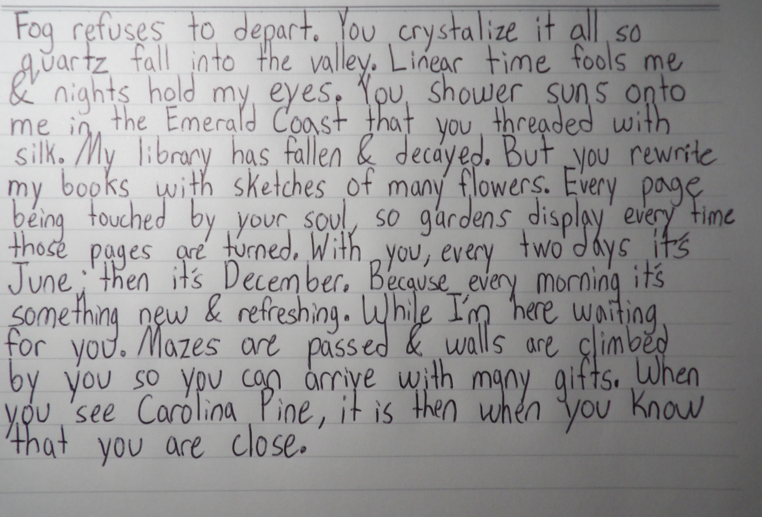 Fog refuses to depart. You crystalize it all so
quartz fall into the valley. Linear time fools me
& nights hold my eyes. You shower suns onto
me in the Emerald Coast that you threaded with
silk. My library has fallen & decayed. But you rewrite
my books with sketches of many flowers. Every page
being touched by your soul, so gardens display every time
those pages are turned. With you, every two days it's
June; then it's December. Because every morning it's
something new & refreshing. While I'm here waiting
for you. Mazes are passed & walls are climbed
by you so you can arrive with many gifts. When
you see Carolina Pine, it is then when you know
that you are close.